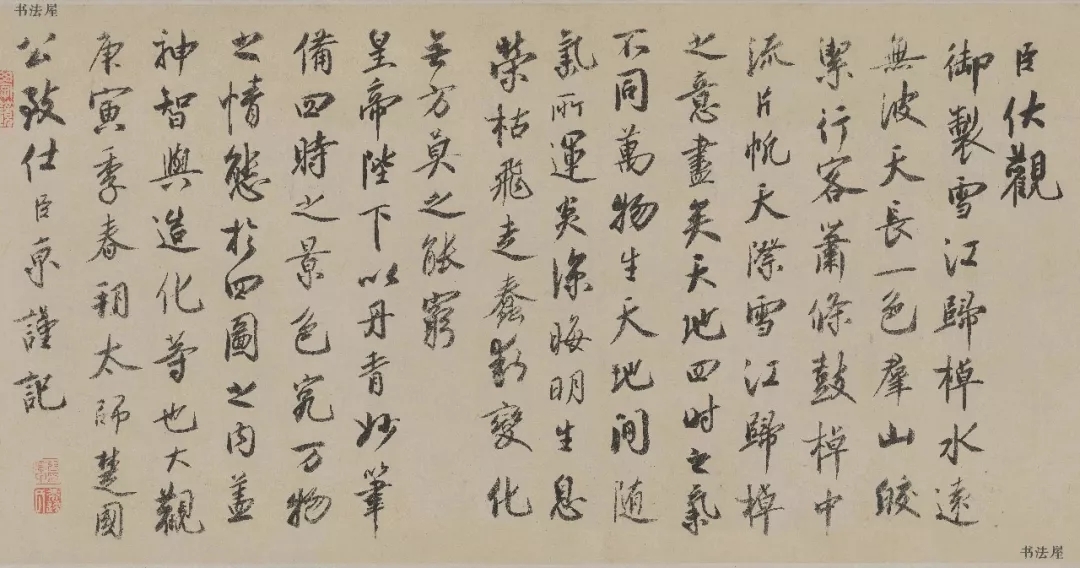 书法屋
臣伏觀
御製雪江歸棹水遠
無波天長一色羣山皎
潔行客蕭條鼓棹中
流片帆天際雪江歸棹
之意盡矣天地四時之氣
不同萬物生天地間随
氣所運炎涼晦明生息
榮枯飛走蠢動變化
無方莫之能窮
皇帝陛下以丹青妙筆
備四時之景色究万物
之情態於四圖之内蓋
神智與造化等也大觀
庚寅季春朔太師楚國
公致仕臣京謹記
书法屋